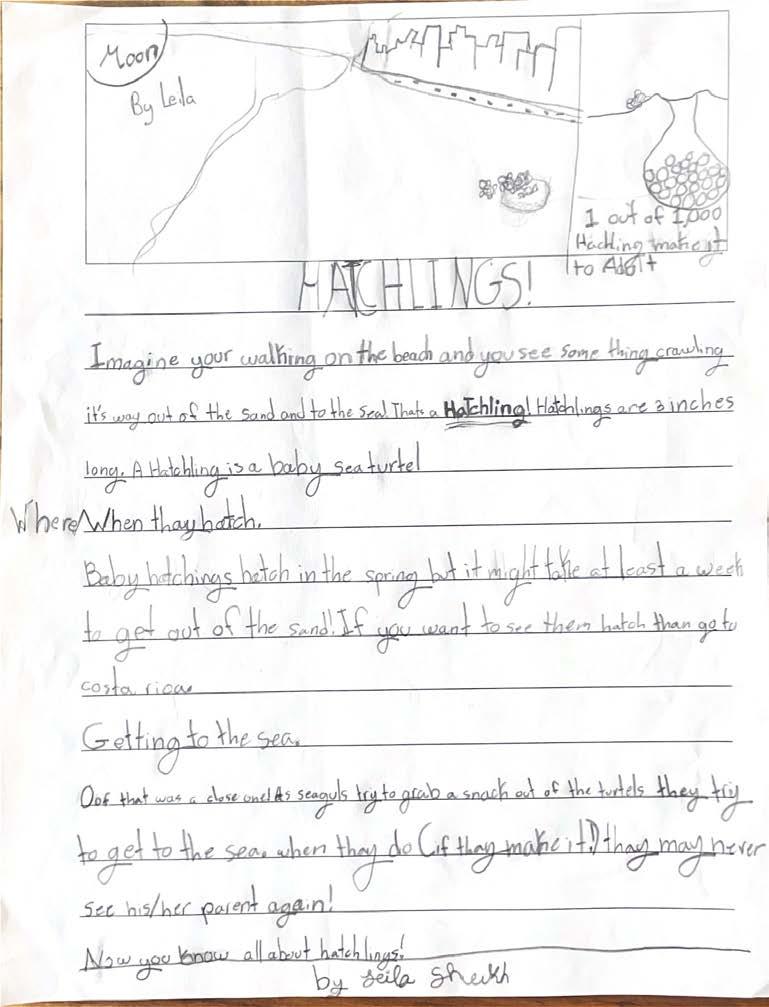 Moon
By Leila
1 out of 1,000
Hachling make it
to Adelt
HATCHLINGS!
Imagine your walking on the beach and you see some thing crawling
it's way out of the sand and to the sea! Thats a Hatchling! Hatchlings are 3 inches
long. A Hatchling is a baby sea turtel
Where/When thay hatch.
Baby hatchings hatch in the spring but it might take at least a week
to get out of the sand! If you want to see them hatch than go to
costa rica.
Getting to the sea.
Oof that was a close one! As seaguls try to grab a snack out of the turtels they try
to get to the sea. when they do (if thay make it!) thay may never
see his/her parent again!
Now you know all about hatchlings!
by Leila Sheikh